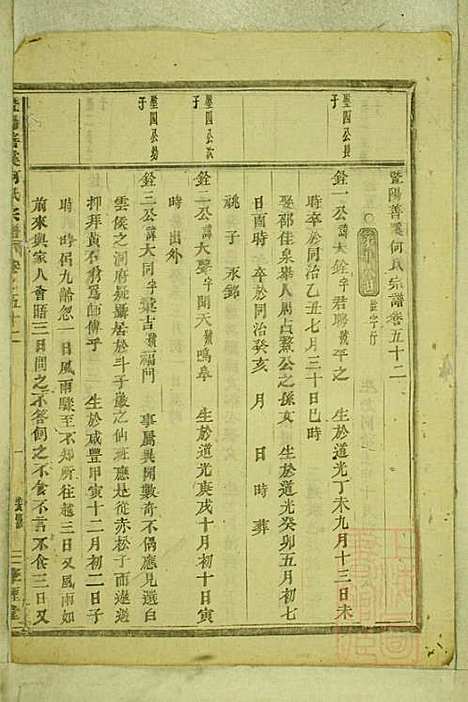 暨陽善溪何氏宗譜卷五十二
銓字行
壆四公長子
銓一公諱大銓字君聘號平之 生於道光丁未九月十三日未
時卒於同治乙丑七月三十日巳時
娶邵佳泉舉人周占鰲公之孫女 生於道光癸卯五月初七
日酉時 卒於同治癸亥 月 日 時 葬
祧子 永鄒
壆四公次子
銓二公諱大聲字聞天號鳴皋 生於道光庚戌十月初十日寅
時 出外
壆四公幼子
銓三公諱大同字彙古號福門 事屬異聞數奇不偶應見遺白
雲侯之洞府疑騎居於斗子巖之仙班應是從赤松子而遠遊
抑拜黃石君爲師傅乎 生於咸豐甲寅十二月初二日子
時 時偶九齡忽一日風雨驟至不知所往越三日又風雨如
前來與家人會晤三日問之不答飼之不食不言不食三日又
暨陽善溪何氏宗譜 卷之五十二 一